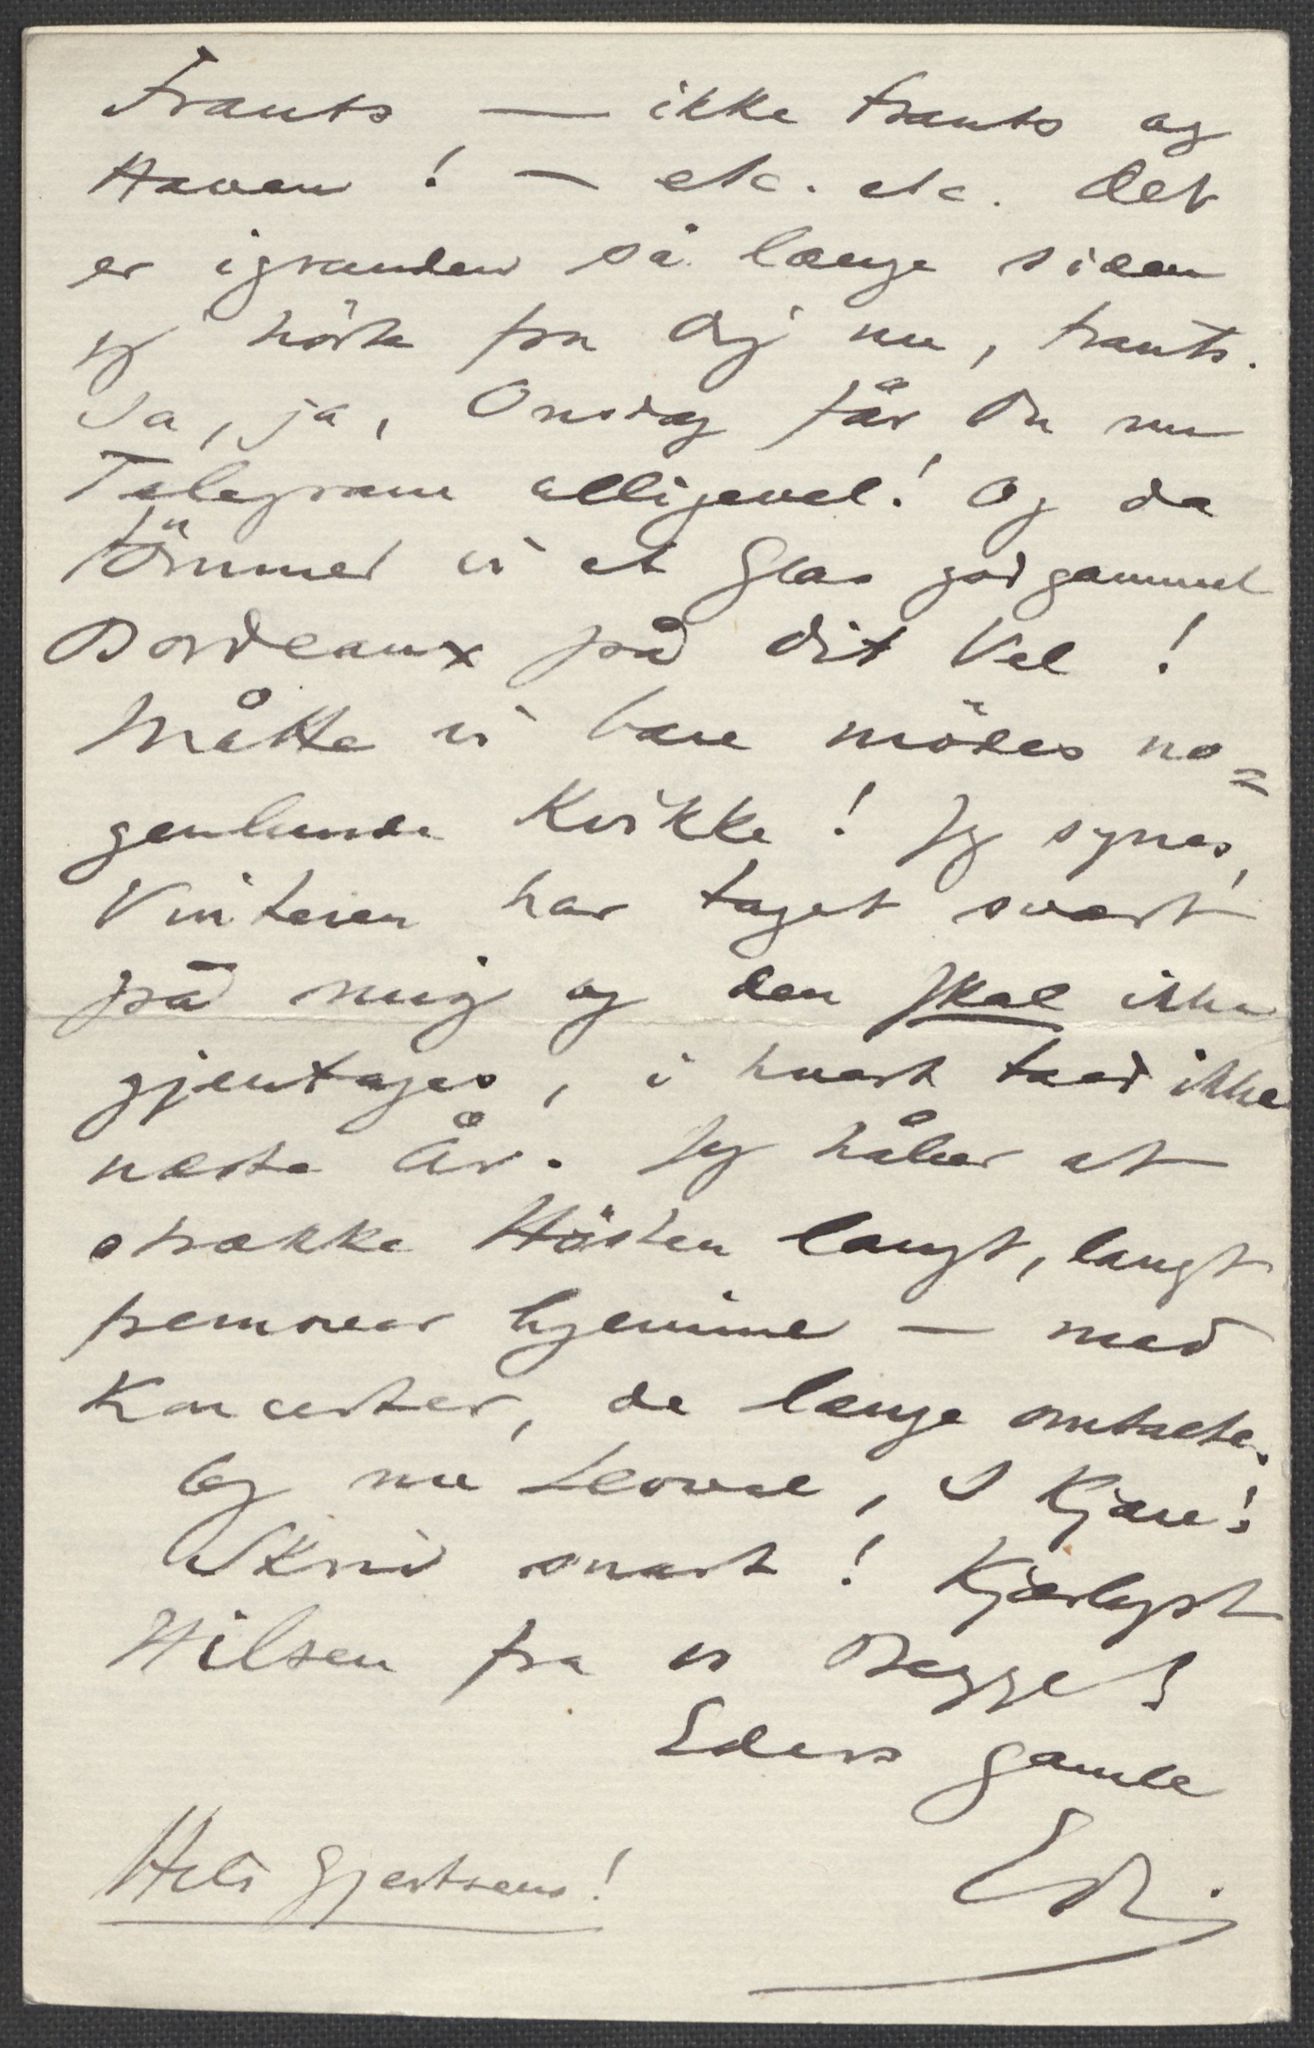 Frants — ikke Frants og
Haven! — etc. etc. Det
er igrunden så længe siden
jeg hörte fra dig nu, Frants.
Ja, ja, Onsdag får Du nu
Telegram alligevel! Og da
tömmer vi et Glas god gammel
Bordeaux på dit Vel!
Måtte vi bare mödes no=
genlunde kvikke! Jeg synes,
Vinteren har taget svært
på mig og den skal ikke
gjentages, i hvert Fald ikke
næste År. Jeg håber at
strække Hösten langt, langt
fremover hjemme — med
Koncerter, de længe omtalte.
Og nu Levvel, I Kjære!
Skriv snart! Kjærligst
Hilsen fra os Begge!
Eders gamle
Edv.
Hils Gjertsens!